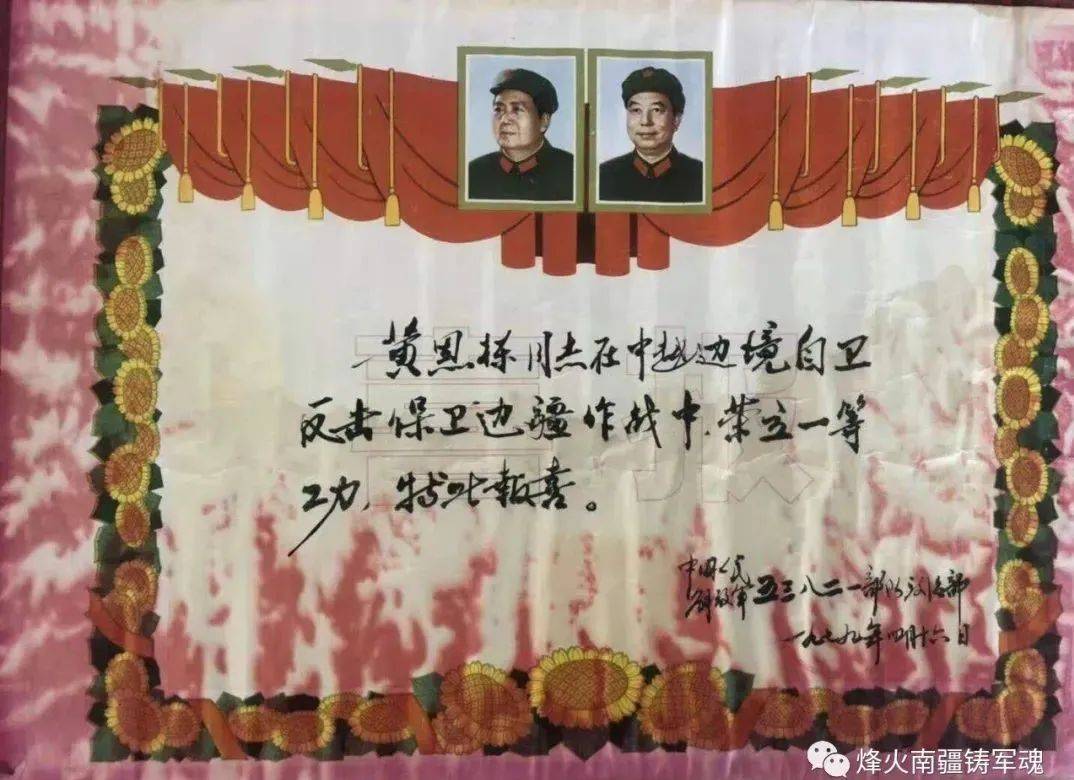 喜报
黄恩栋同志在中越边境自卫
反击保卫边疆作战中，荣立一等
功，特此報喜。
中国人民
解放军五三八二一部队政治部
一九七九年四月十六日
烽火南疆铸军魂